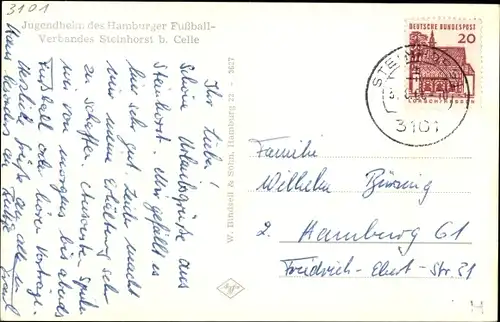 3101
Jugendheim des Hamburger Fußball-
Verbandes Steinhorst b. Celle
Ihr Lieben!
Schöne Urlaubsgrüße aus
Steinhorst. Mir gefällt es
hier sehr gut. Leider macht
mir meine Erkältung sehr
zu schaffen. Ansonsten spielen
wir von morgens bis abends
Fußball oder hören Vorträge.
Herzliche Grüße an alle
W. Bundsell & Sohn, Hamburg 22 - 3627
agfa
DEUTSCHE BUNDESPOST
20
LORSCH/HESSEN
STEINHORST
3101
Familie
Wilhelm Büsing
2. Hamburg 61
Friedrich-Ebert-Str. 21
H